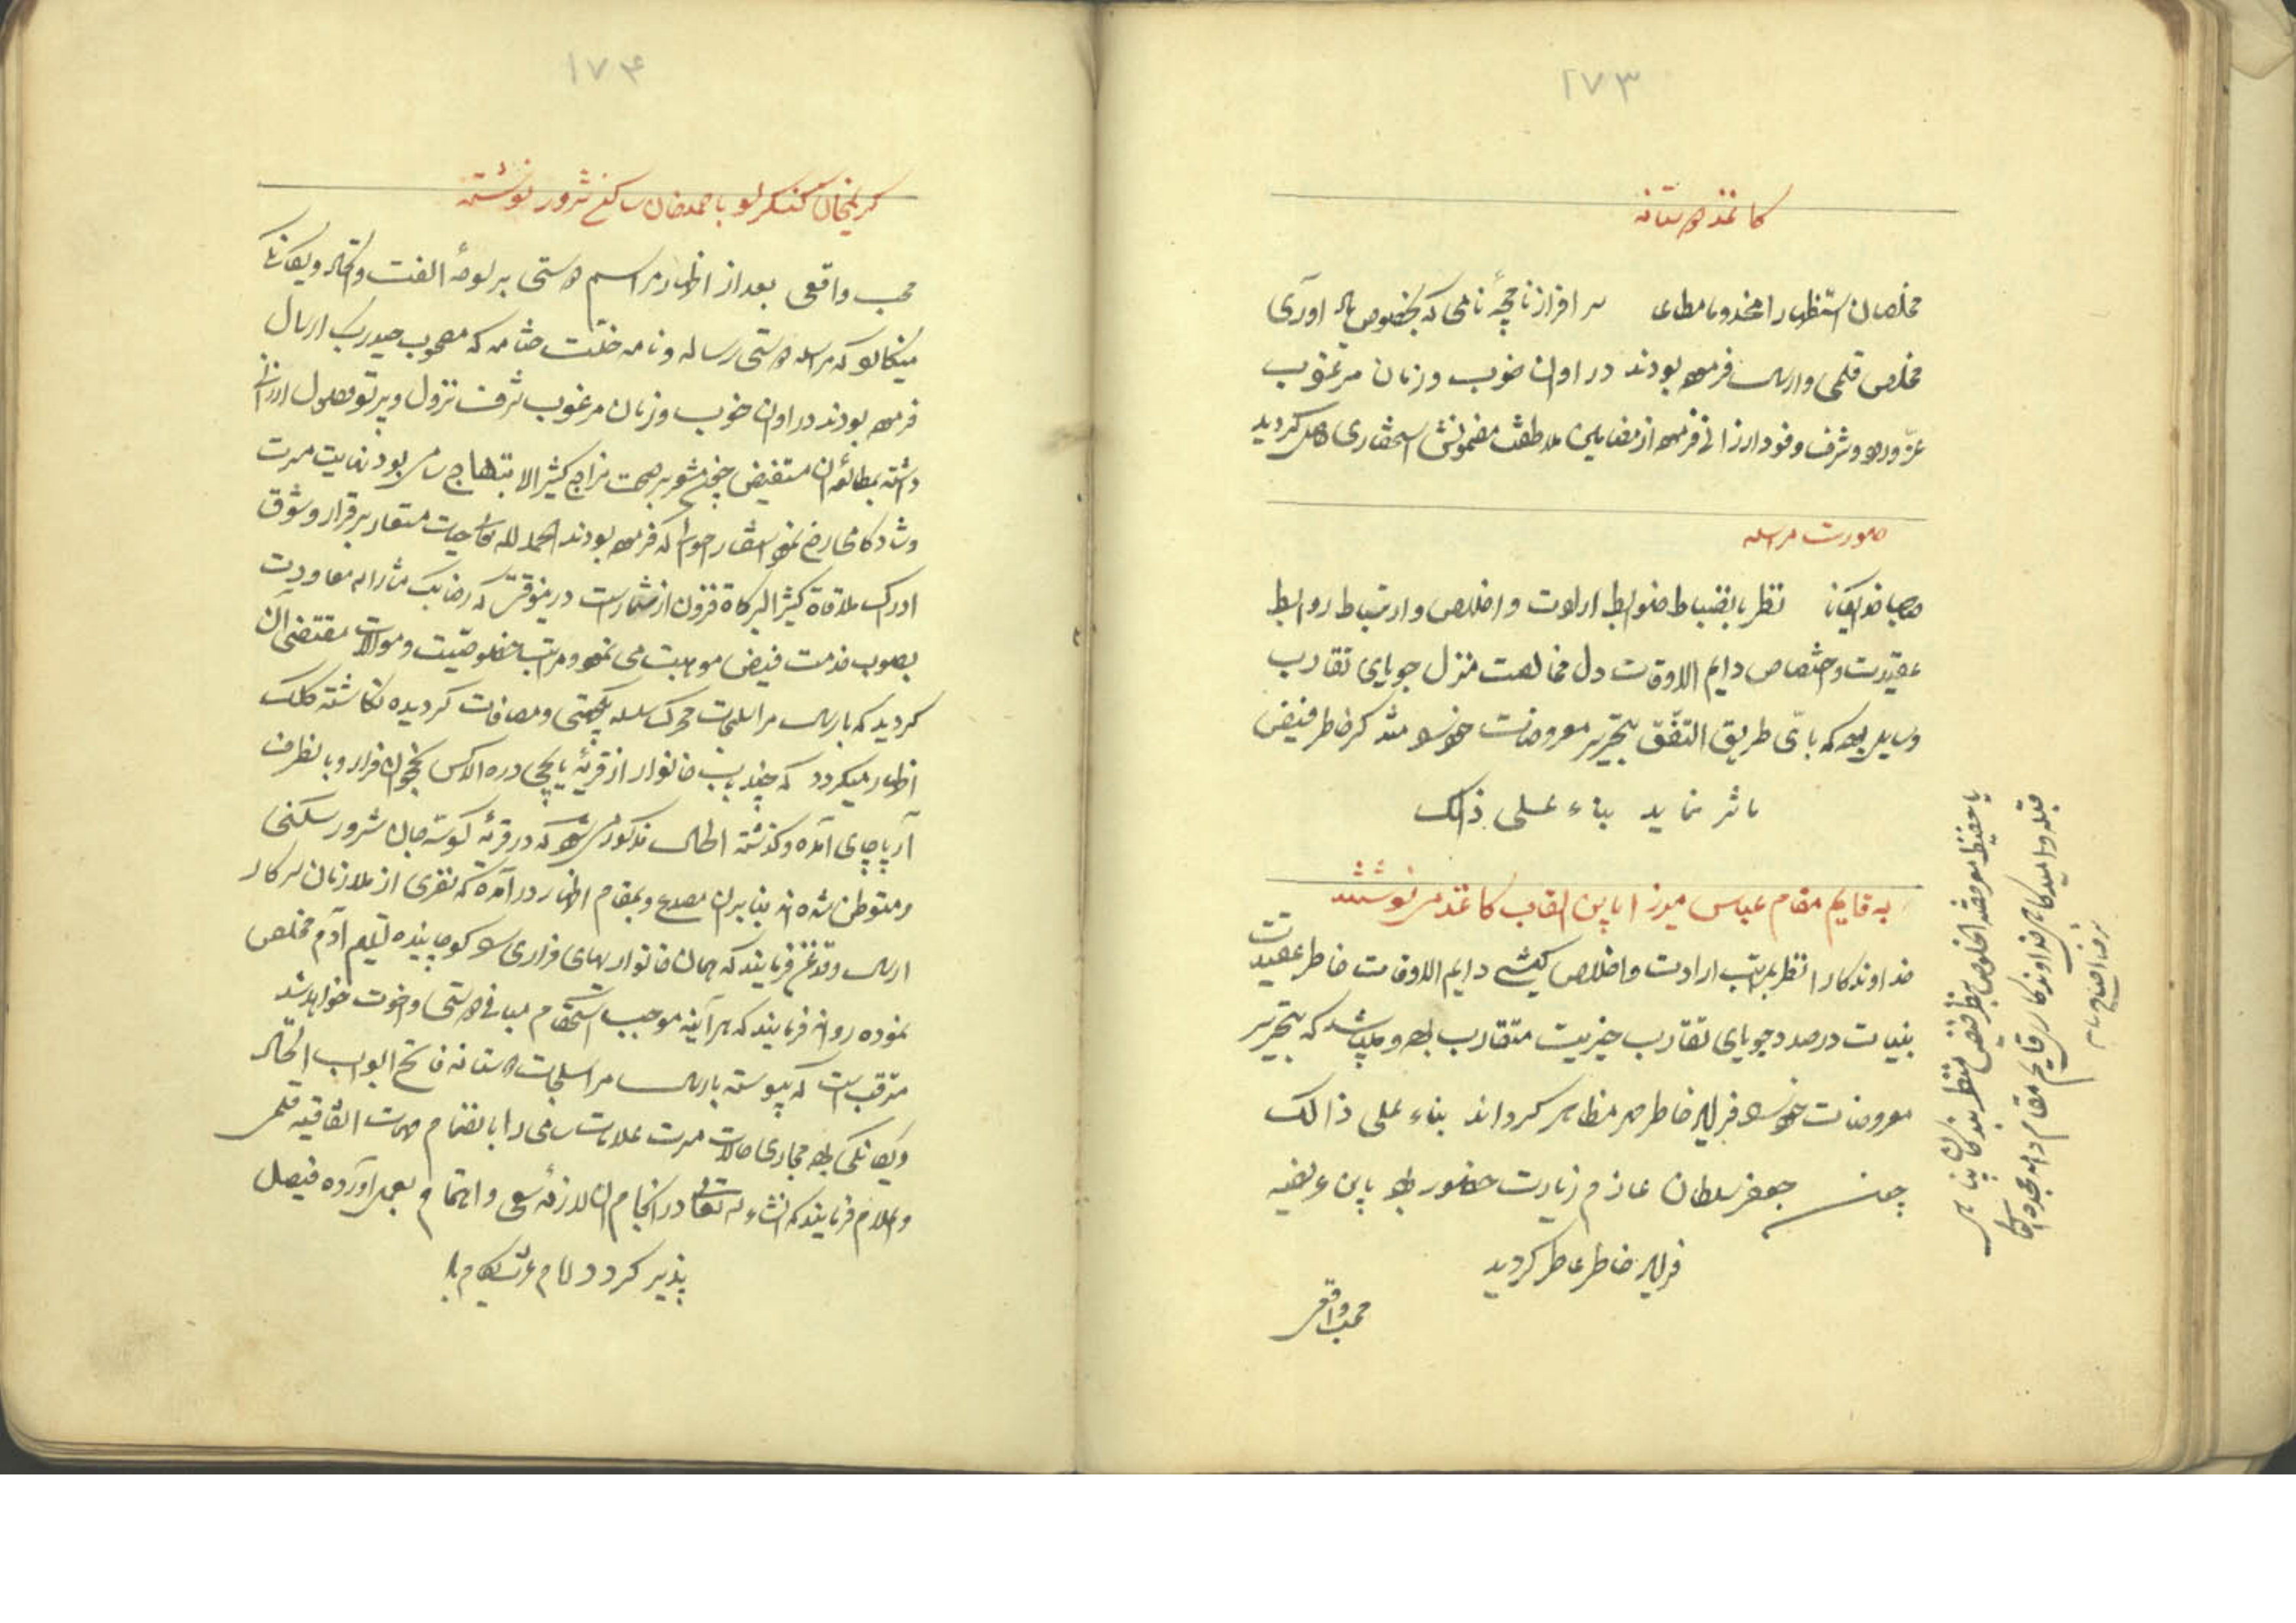 ۱۷۳
کاغذ دوستانه
مخلصان استظهارا مخدوما مطاعا سرافراز نامچهٔ نامی که بخصوص یاد آوری
مخلص قلمی و ارسال فرموده بودند در اوان خوب و زمان مرغوب
عزّ ورود و شرف وفود ارزانی فرموده از مضامین ملاطفت مضمونش استحضاری حاصل گردید
صورت مراسله
نظر بانضباط ضوابط ارادت و اخلاص و ارتباط روابط
عقیدت و اختصاص دایم الاوقات دل مخالصت منزل جویای تقارب
وسایل بوده که بایّ طریق اتّفق بتحریر معروضات خود را متذکر خاطر فیض
ماثر نماید بناء علی ذالک
به قایم مقام عباس میرزا باین القاب کاغذ می نوشتند
خداوندکارا نظر بمراتب ارادت و اخلاص کیشی دایم الاوقات خاطر عقیدت
بنیات درصدد جویای تقارب خیریت متقارب بوده و میباشد که بتحریر
معروضات خود را فریاد خاطر مهر مظاهر گرداند بناء علی ذالک
چون جعفر سلطان عازم زیارت حضور بود باین عریضه
خاطر عاطر گردید
محب واقعی
یا حفیظ معروضه الخلوص بنظر فیض منظر بندگان
قبله و امیدگاهی خداوندکاری قایم مقام دام مجده
۱۷۴
کریمخان کنگرلو باحمدخان ساکن شرور نوشته
محب واقعی بعد از اظهار مراسم دوستی بر لوحهٔ الفت و اتحاد و یکانکی
مینکارد که مراسله دوستی رساله و نامه خلّت ختامه که مصحوب حیدر بک ارسال
فرموده بودند در اوان خوب و زمان مرغوب شرف نزول و پرتو وصول ارزانی
داشته بمطالعهٔ آن مستفیض چون مشعر بر صحت مزاج کثیر الابتهاج سامی بود نهایت مسرت
و شادکامی رخ نمود استفسار احوال که فرموده بودند الحمد لله تعالی حیات مستعار برقرار و شوق
ادراک ملاقاة کثیر البرکاة فزون از شمار است درینوقت که رضا بک مشارالیه معاودت
بصوب خدمت فیض موهبت می نمود و مراتب خصوصیّت و موالات مقتضی آن
کردید که بارسال مراسلجات محرک سلسله یکجهتی و مصافات کردیده نکاشته کلک
اظهار میکردد که چند باب خانوار از قریهٔ یایجی دره الاکس نخجوان فرار و بانطرف
آرپاچای آمده و کذشته الحال مذکور می شود که در قریهٔ کوسه جان شرور سکنی
و متوطن شده اند بنابران مصدع و بمقام اظهار در آمده که نفری از ملازمان سرکار
ارسال و قدغن فرمایند که همان خانوارهای فراری را کوچاینده تسلیم آدم مخلص
نموده روانه فرمایند که هر آینه موجب استحکام مبانی دوستی و اخوت خواهد شد
مترقب است که پیوسته بارسال مراسلجات دوستانه فاتح ابواب اتحاد
و یکانکی بوده مجاری حالات مسرت علامات سامی را بانضمام مهمات اتفاقیه قلمی
و اعلام فرمایند که انشاء الله تعالی در انجام آن لازمهٔ سعی و اهتمام بعمل آورده فیصل
پذیر کردد ایام عزت بکام باد